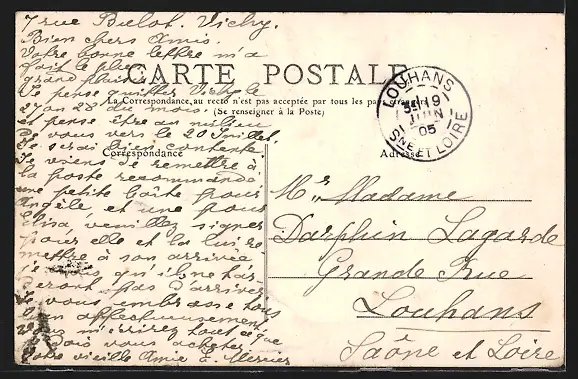 7 rue Balot. Vichy.
Bien chers Amis.
Votre bonne lettre m'a
fait le plus
grand plaisir
Je pense quitter Vichy le
27 ou 28 du mois.
et peut être au milieu
de vous vers le 20 Juillet.
Je serai bien contente
Je viens de remettre à
la poste recommandé
une petite boîte pour
Angèle et une pour
Elisa, veuillez signer
pour elle et la lui re
mettre à son arrivée
qu'il ne tar
deront pas d'arriver
Je vous embrasse tous
bien affectueusement
Vous m'écrirez tout ce que
Je dois vous acheter
Votre vieille Amie E. Mercier
CARTE POSTALE
La Correspondance au recto n'est pas acceptée par tous les pays étrangers
(Se renseigner à la Poste)
Correspondance
Adresse
LOUHANS
19
JUIN
05
SNE ET LOIRE
Mr, Madame
Darphin Lagarde
Grande Rue
Louhans
Saône et Loire